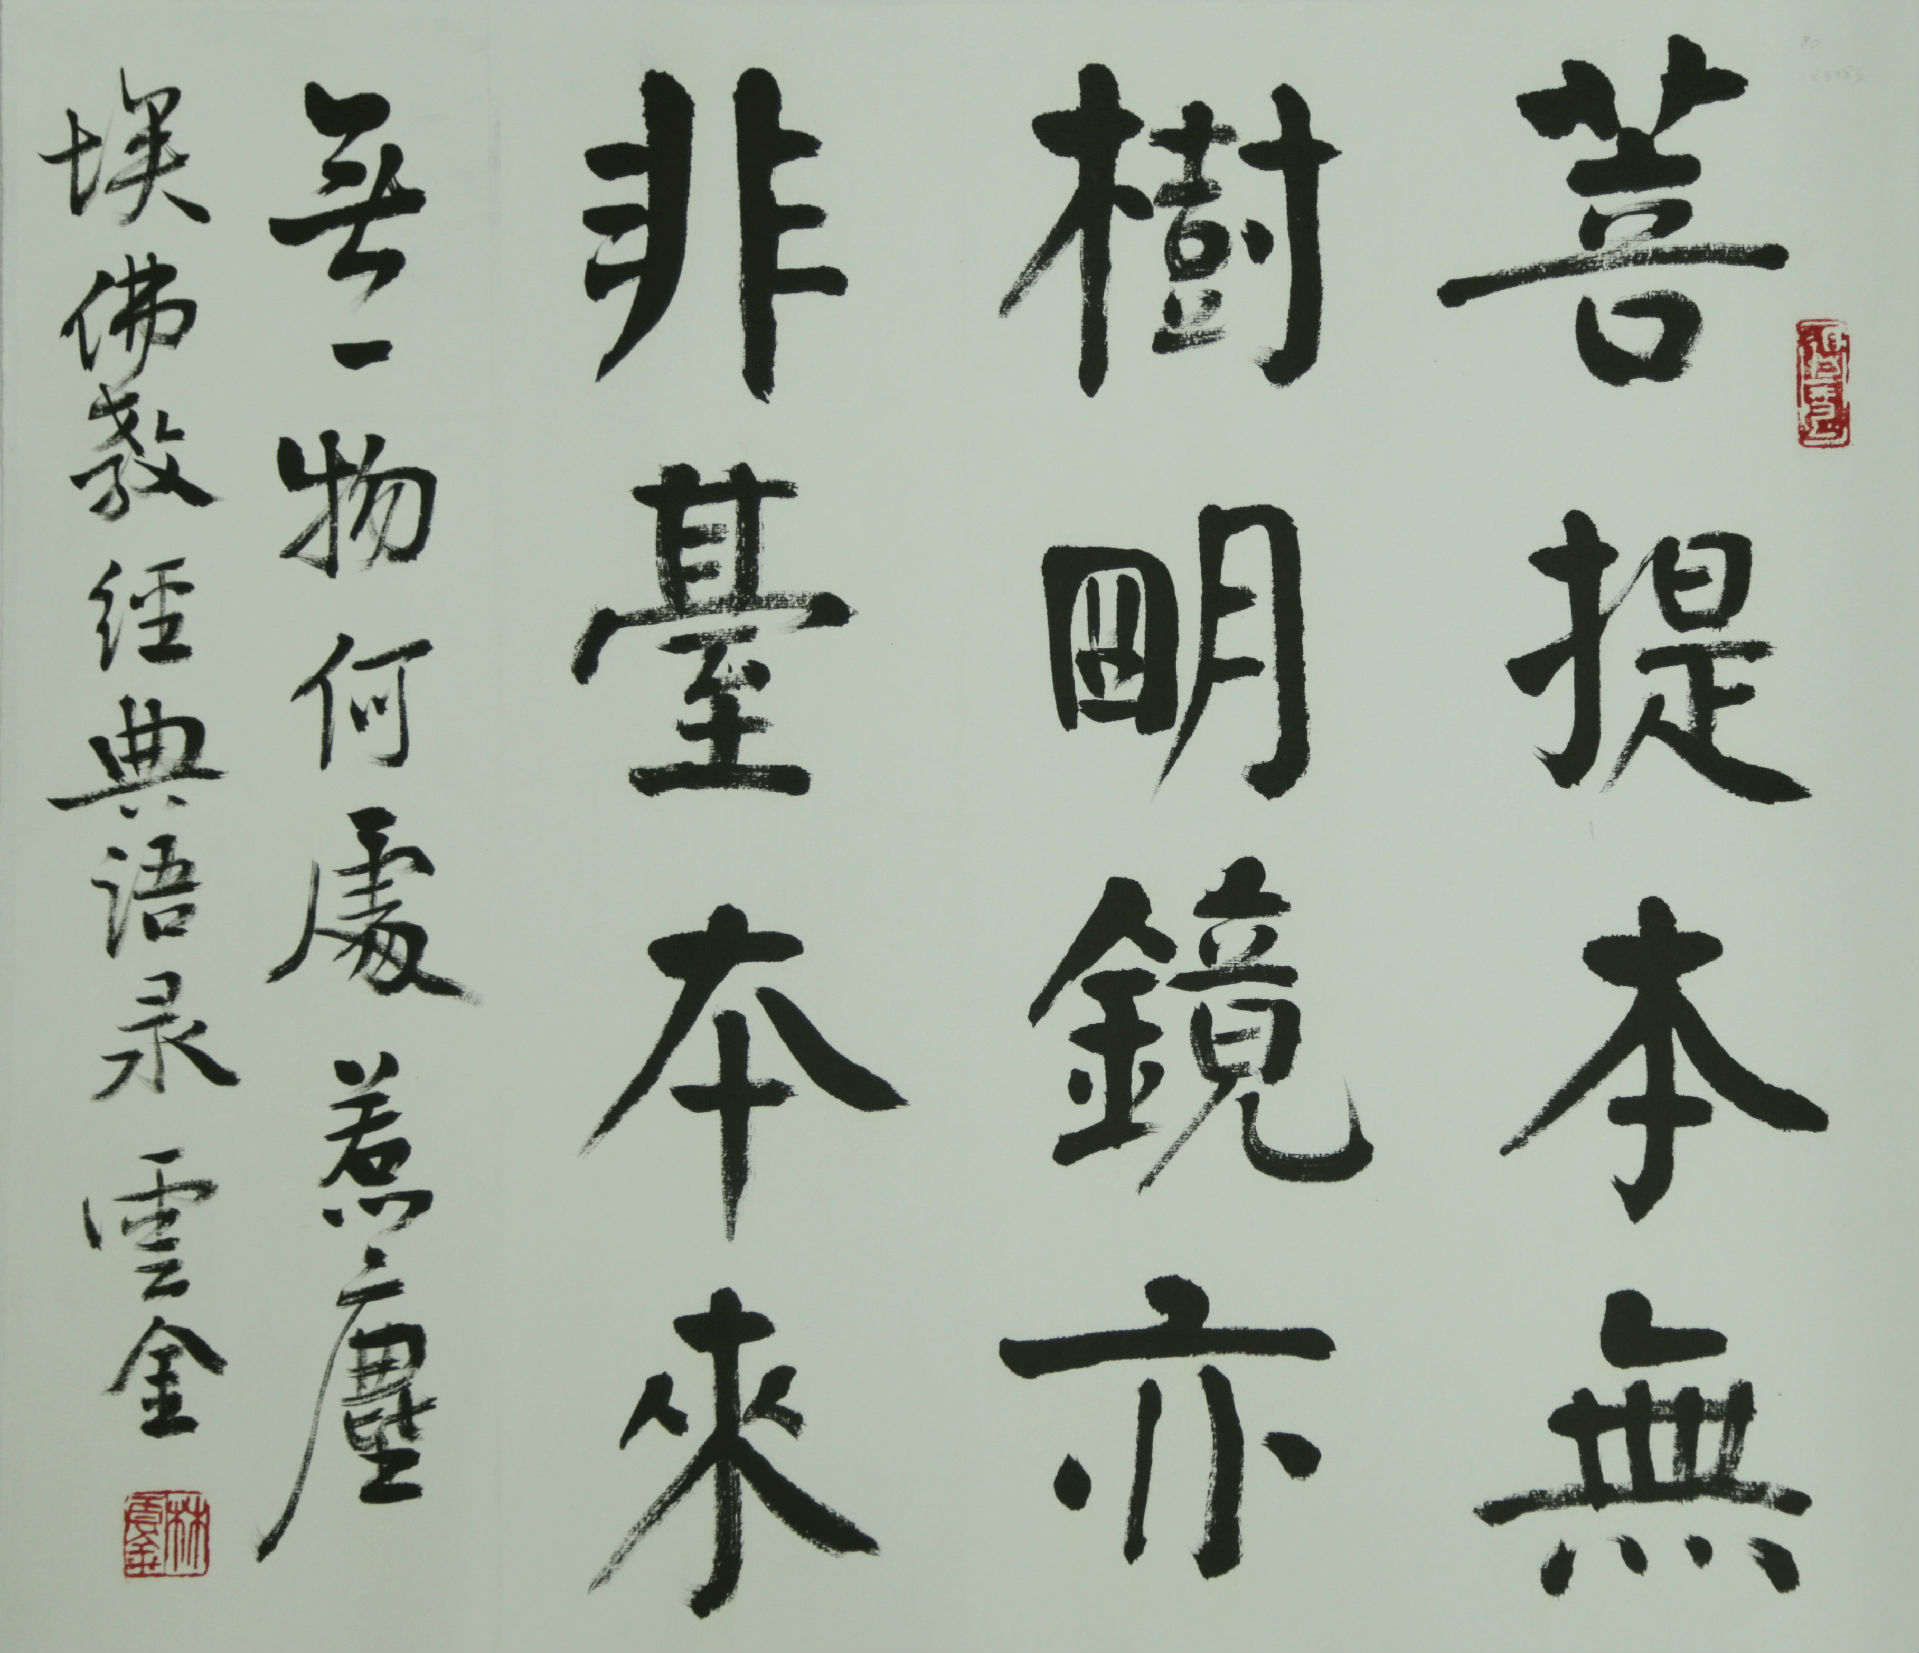 菩提本無
樹明鏡亦
非臺本來
無一物何處惹塵
埃佛教經典语录雲金